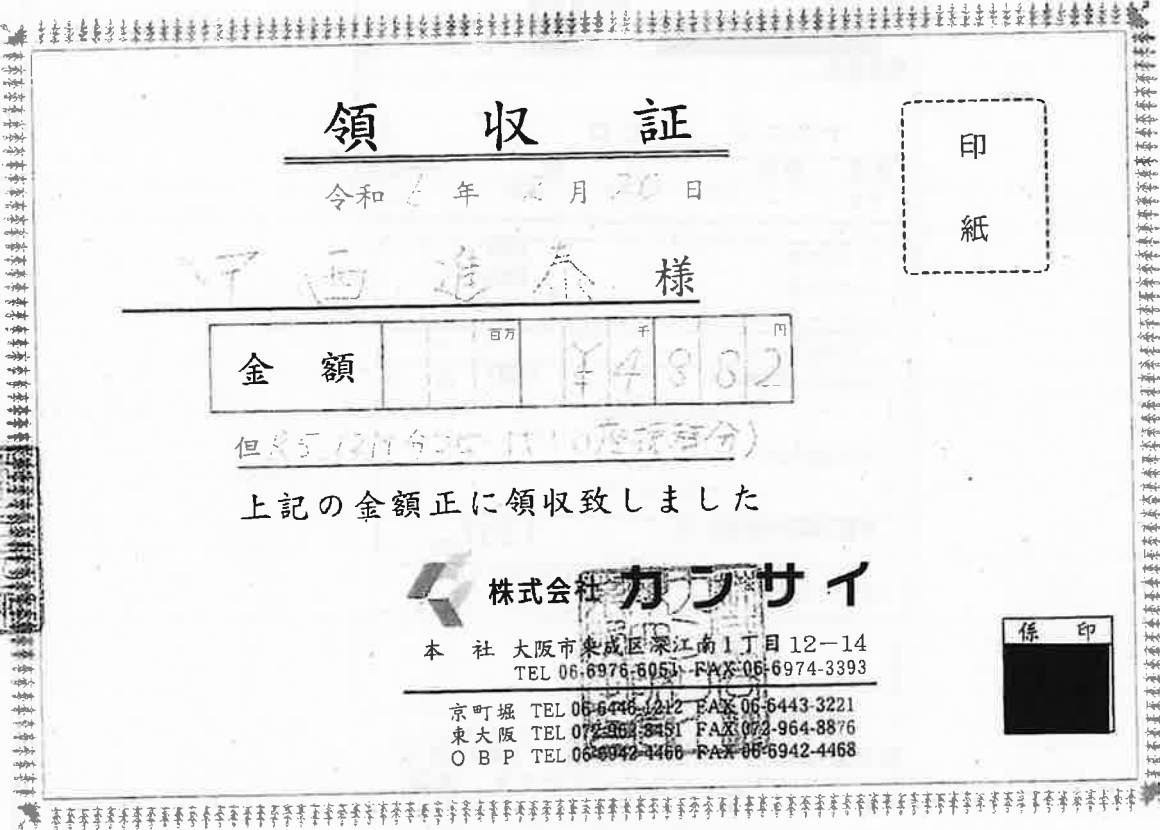 領収証
印紙
令和 年 月 20 日
西進 様
金額 百万 千 円
¥4882
但
上記の金額正に領収致しました
株式会社 カンサイ
本社 大阪市東成区深江南1丁目12-14
TEL 06-6976-6051 FAX 06-6974-3393
京町堀 TEL 06-6446-1212 FAX 06-6443-3221
東大阪 TEL 072-962-8451 FAX 072-964-8876
OBP TEL 06-6942-4466 FAX 06-6942-4468
係印